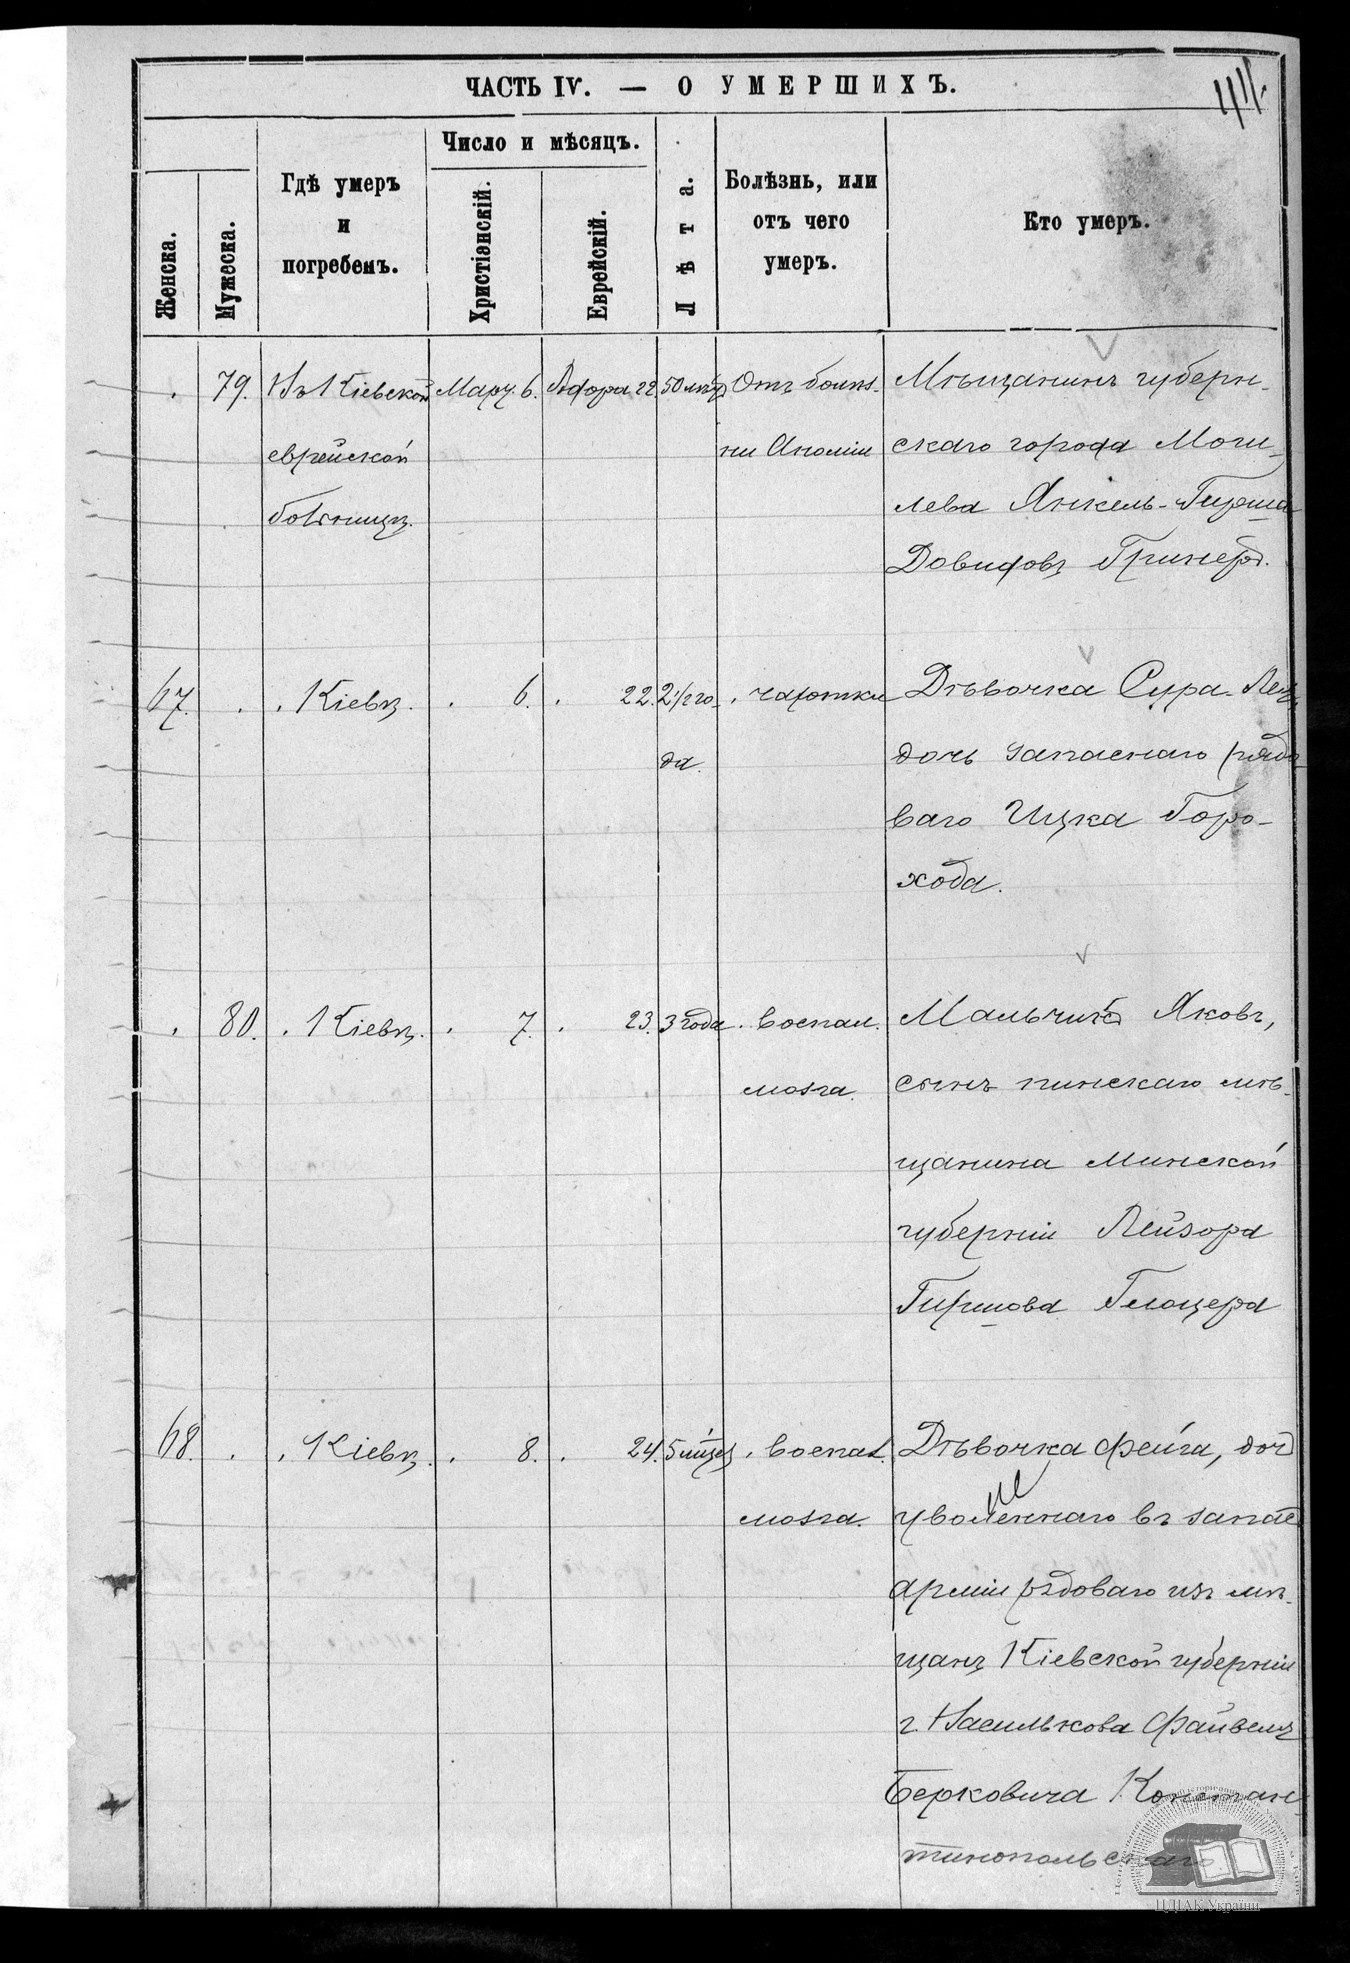 ЧАСТЬ IV. — О УМЕРШИХЪ.
Женска.
Мужеска.
Гдѣ умеръ
и
погребенъ.
Число и мѣсяцъ.
Христіанскій.
Еврейскій.
Лѣта.
Болѣзнь, или
отъ чего
умеръ.
Кто умеръ.
79. Въ Кіевской Март. 6. Адора 22. 50 лѣтъ Отъ болѣз- Мѣщанинъ губерн-
еврейской ни Анэмiи скаго города Моги-
больницѣ. лева Янкель-Гирша
Довидовъ
67. Кіевѣ. 6. 22. 2½ го- чахотки Дѣвочка Сура-
да. дочь запаснаго рядо
ваго Ицка Горо-
хода.
80. Кіевѣ. 7. 23. 3 года воспал. Мальчикъ Яковъ,
мозга. сынъ пинскаго мѣ-
щанина Минской
губерніи Лейзора
Гиршова Глоцера
68. Кіевѣ. 8. 24. 5 мѣсец воспал. Дѣвочка Фейга, доч
мозга. уволеннаго въ запас
арміи рядоваго изъ мѣ-
щанъ Кіевской губерніи
г. Василькова Файвеля
Берковича Констан-
тинопольскаго.
ЦДІАК України